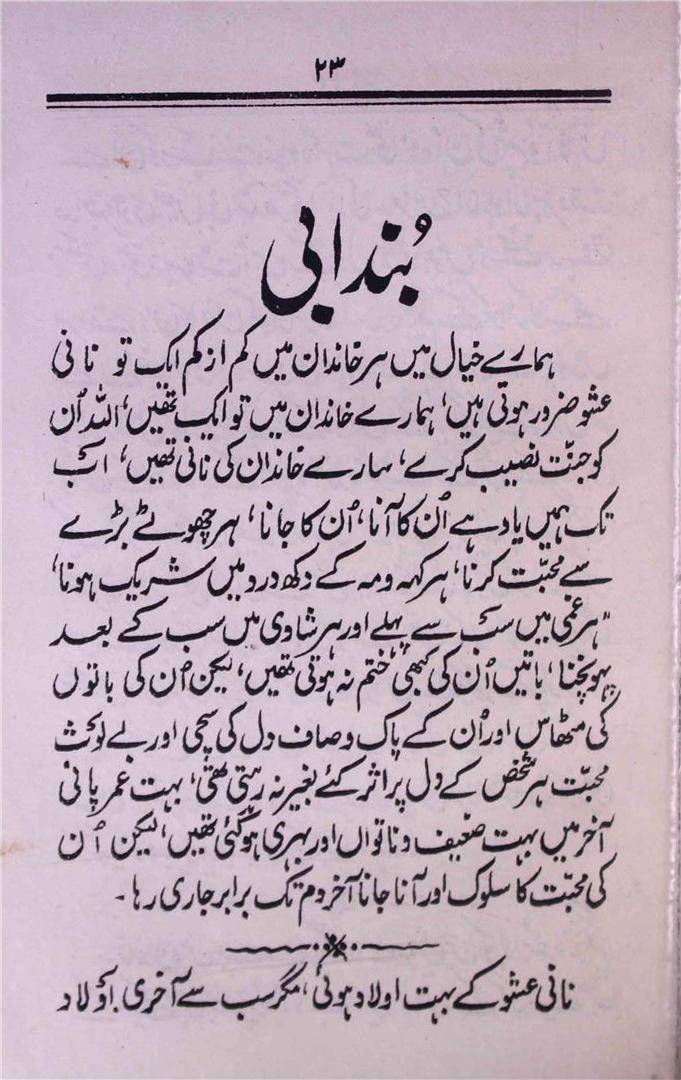 ۲۳
بُندابی
ہمارے خیال میں ہر خاندان میں کم از کم ایک تو نانی
عشو ضرور ہوتی ہیں، ہمارے خاندان میں تو ایک تھیں، اللہ اُن
کو جنّت نصیب کرے، سارے خاندان کی نانی تھیں، اب
تک ہمیں یاد ہے اُن کا آنا، اُن کا جانا، ہر چھوٹے بڑے
سے محبّت کرنا، ہر کہہ و مہ کے دکھ درد میں شریک ہونا،
ہر غمی میں سب سے پہلے اور ہر شادی میں سب کے بعد
پہونچنا، باتیں اُن کی کبھی ختم نہ ہوتی تھیں، لیکن اُن کی باتوں
کی مٹھاس اور اُن کے پاک و صاف دل کی سچی اور بے لوث
محبّت ہر شخص کے دل پر اثر کئے بغیر نہ رہتی تھی، بہت عمر پائی
آخر میں بہت ضعیف و ناتواں اور بہری ہو گئی تھیں، لیکن اُن
کی محبّت کا سلوک اور آنا جانا آخر دم تک برابر جاری رہا۔
نانی عشو کے بہت اولاد ہوئی، مگر سب سے آخری اولاد